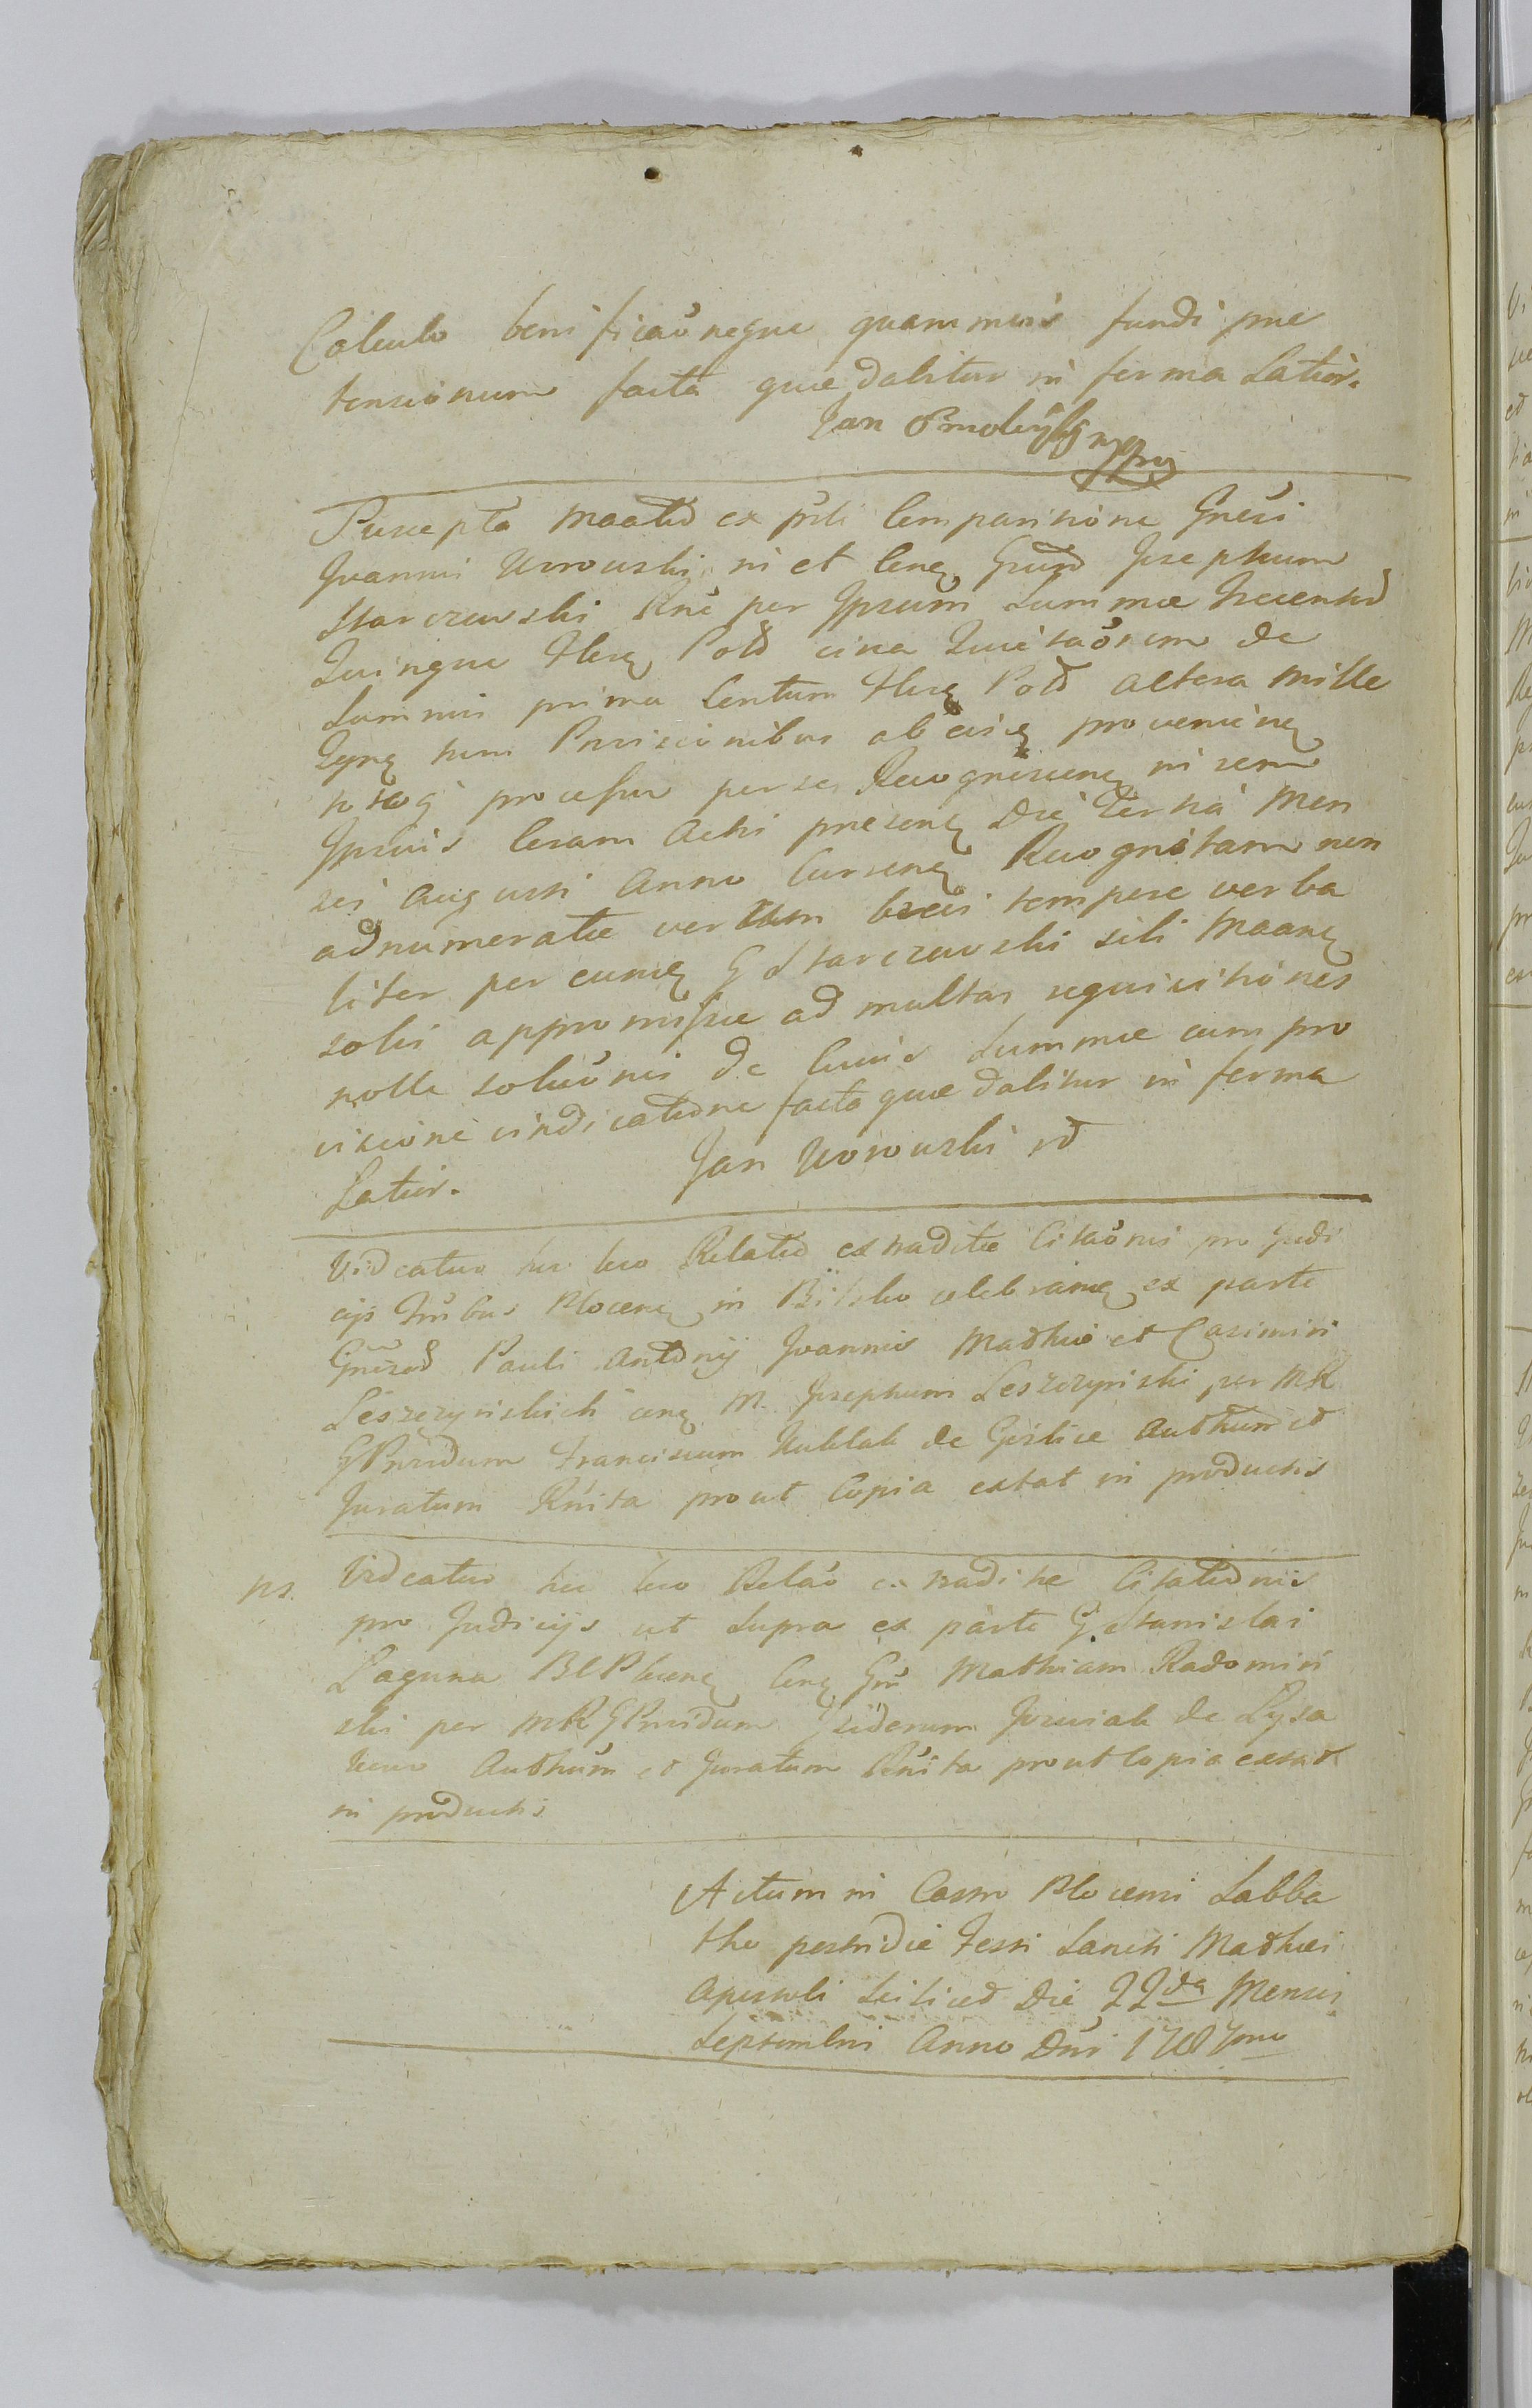 Calculo benificaõneque quaminus fundi prae
tensionum facta quae dabitur in forma Latiori
Jan
Suscepta Maãtio ex prsti Comparitione Gnrsi
Joannis Urrowski in et Cenę Gnrũd Josephum
Starczewski Rne per Ipsum Summae Trecentad
Quinque Flerę Pold circa Quietaõnem de
Summis prima Centum Flerę Pold altera Mille
cum Provisionibus ab eisę provenienę
processu per se Recognescenę in rem
Ipsius Coram Actis presenę Die Tertia Men
sis Augusti Anno Currenę Recognitam non
adnumeratae verum brevi tempore verba
liter per eumę G Starczewski sibi Maanę
solvi appromissae ad multas requisitiones
nolle soluõnis de Cuius Summae cum pro
visione vindicatione facta quae dabitur in forma
Latiori. Jan Urowski
Videatur hic loco Relatio extraditae Citaõnis pro Judi
cijs Trribus Plocenę in Bielsko celebranę ex parte
Gnrsod Pauli Antonij Joannis Mathiae et Casimiri
Leszczynskich cenę M. Josephum Leszczynski per MR
GProvidum Franciscum Kublak de Goslice Authum et
Juratum Rnita prout Copia extat in productis
ns. Videatur hic loco Relaõ extraditae Citationis
pro Judicijs ut Supra ex parte G Stanislai
Laguna BCPlocenę Cenę Gnr Mathiam Radomiń
ski per MRGProvidum Isidorum Jozwiak de Lysa
kowo Authũm et Juratum Rnita prout Copia extat
in productis
Actum in Castro Plocensi Sabba
tho postridie Festi Sancti Mathaei
Apostoli Scilicet Die 22da Mensis
Septembris Anno Dni 1787mo